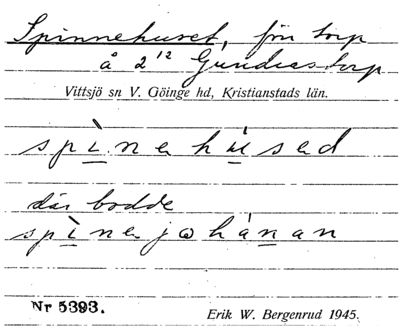 Spinnehuset, förr torp
å 2¹² Gundrastorp
Vittsjö sn V. Göinge hd, Kristianstads län.
spìnahúsad
där bodde
spìnajohánan
Nr 5393.
Erik W. Bergenrud 1945.